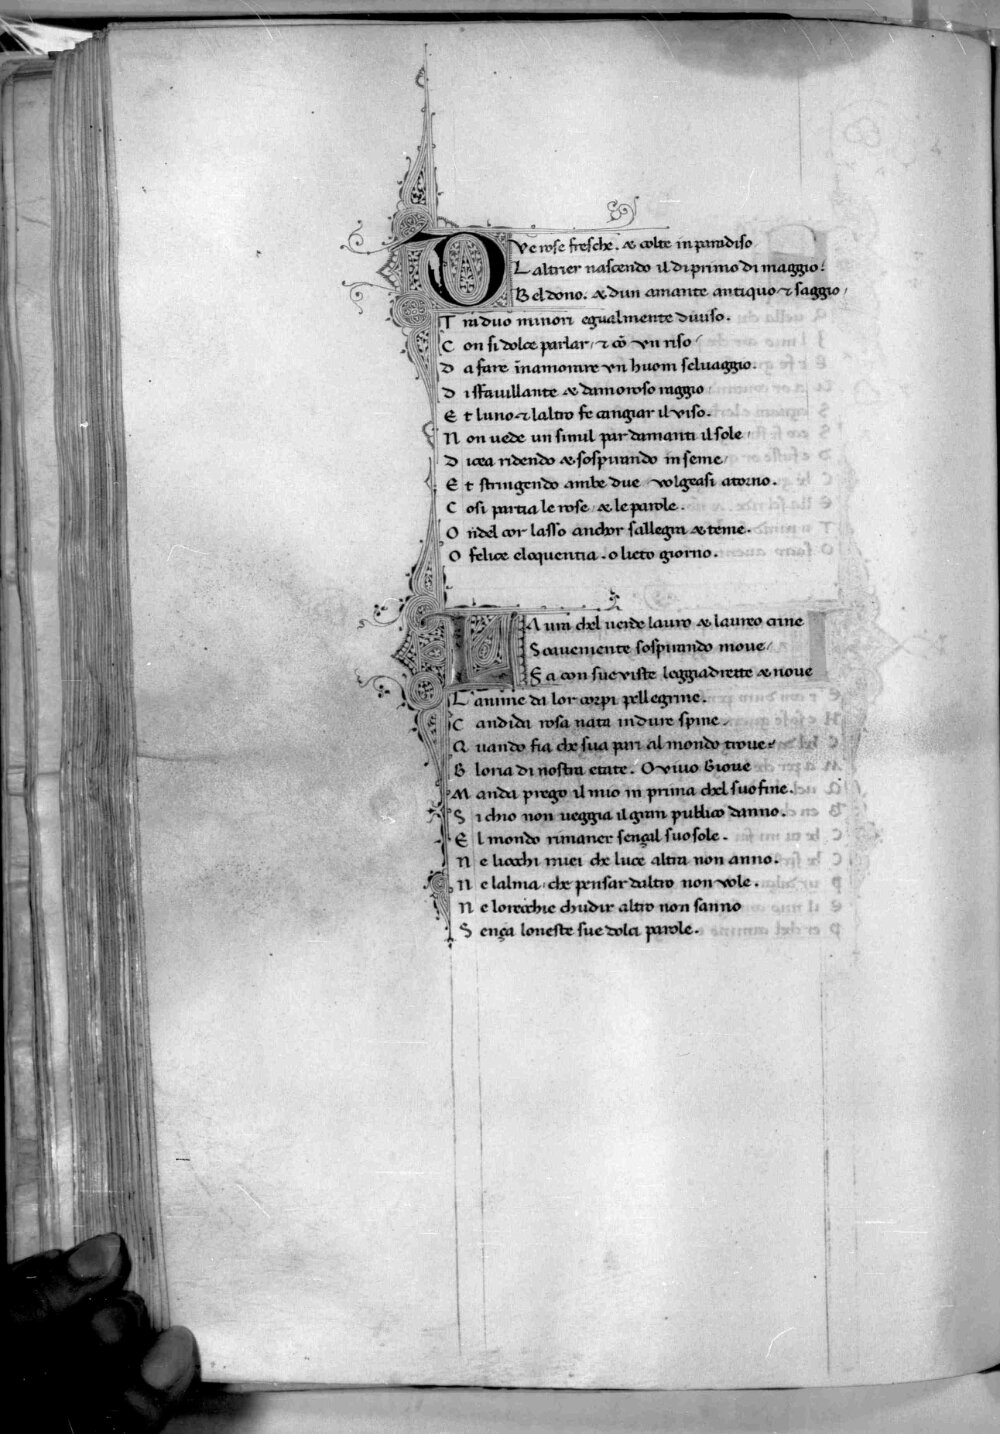 Due rose fresche. & colte in paradiso
L altrier nascendo il di primo di maggio:
Bel dono. & dun amante antiquo ⁊ saggio
T ra duo minori egualmente diuiso.
C on si dolce parlar, ⁊ cō vn riso
D a fare īnamorare vn huom seluaggio.
D i sfauillante & damoroso raggio
E t luno ⁊ laltro fe cangiar il viso.
N on uede un simil par damanti il sole
D icea ridendo & sospirando inseme
E t stringendo ambe due volgeasi atorno.
C osi partia le rose & le parole.
O ndel cor lasso anchor sallegra & teme.
O felice eloquentia. o lieto giorno.
LAura chel uerde lauro & laureo crine
Soauemente sospirando moue
Fa con sue viste leggiadrette & noue
L anime da lor corpi pellegrine.
C andida rosa nata in dure spine
Q uando fia che sua pari al mondo troue
G loria di nostra etate. O viuo Gioue
M anda prego il mio in prima chel suo fine.
S i chio non ueggia il gran publico danno.
E l mondo rimaner sençal suo sole.
N e liocchi miei che luce altra non anno.
N e lalma che pensar daltro non vole.
N e lorecchie chudir altro non sanno
S ença loneste sue dolci parole.